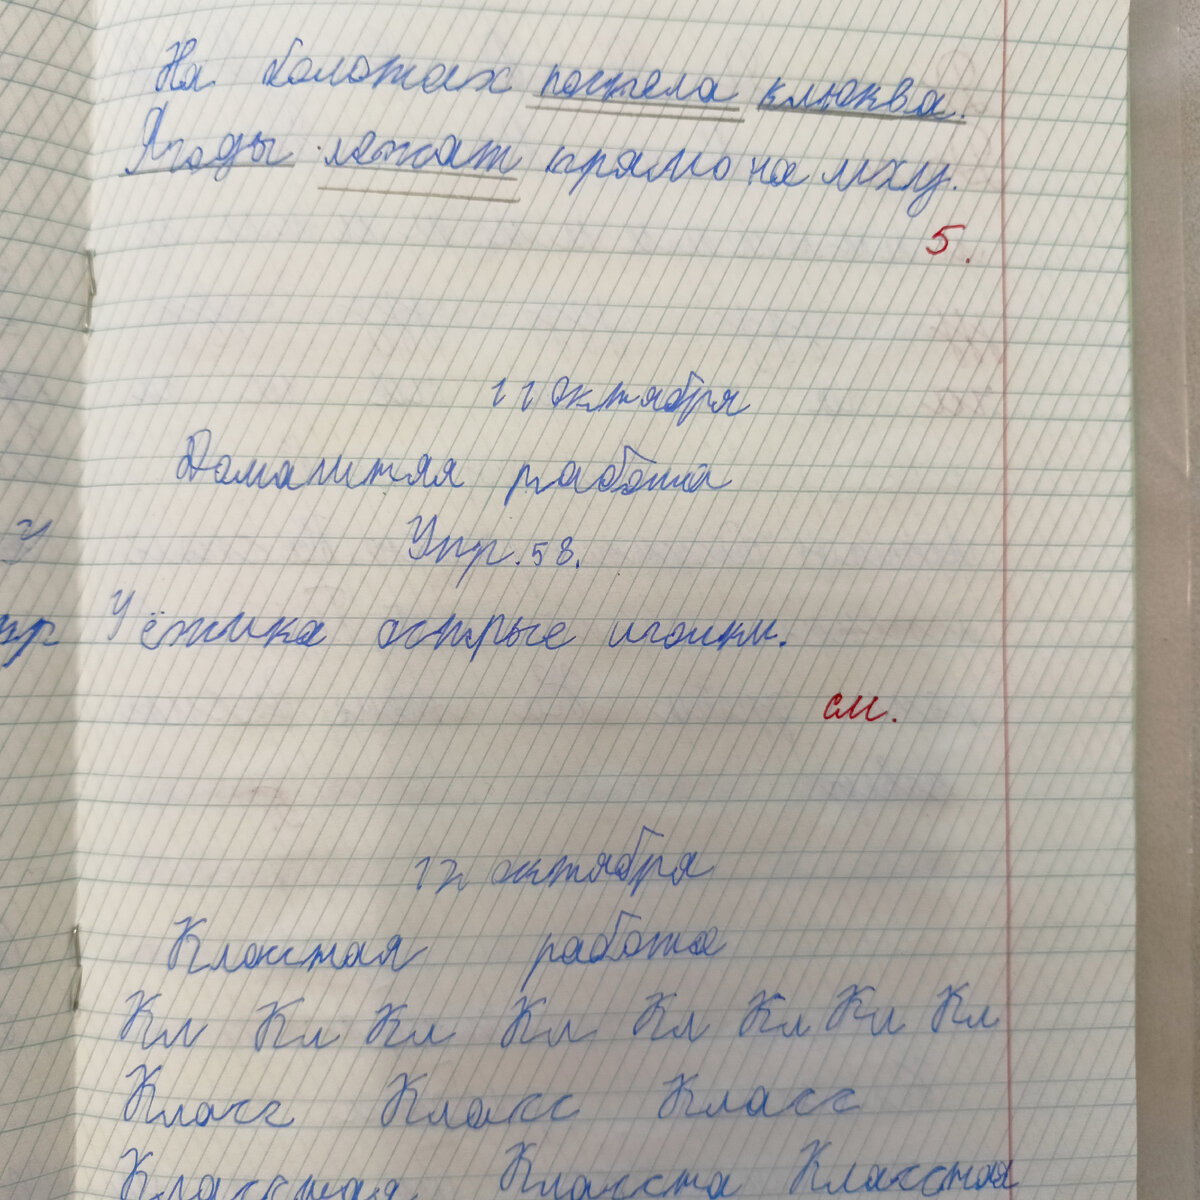 На болотах поспела клюква.
Ягоды лежат прямо на мху.
5.
11 октября
Домашняя работа
Упр. 58.
У ёжика острые иголки.
см.
12 октября
Классная работа
Кл Кл Кл Кл Кл Кл Кл Кл
Класс Класс Класс
Классная Классна Классная